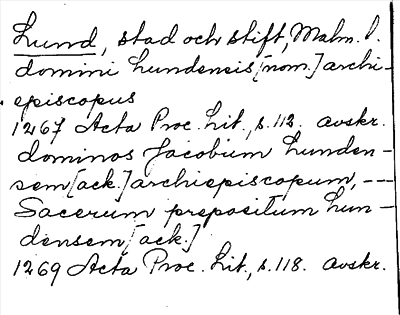 Lund, stad och stift, Malm. l.
domini Lundensis [nom.] archi-
episcopus
1267 Acta Proc. Lit., s. 112. avskr.
dominos Jacobum Lunden-
sem [ack.] archiepiscopum, ---
Sacerum prepositum Lun-
densem [ack.]
1269 Acta Proc. Lit., s. 118. avskr.